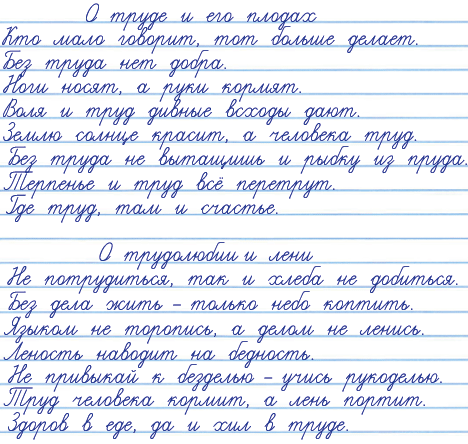 О труде и его плодах
Кто мало говорит, тот больше делает.
Без труда нет добра.
Ноги носят, а руки кормят.
Воля и труд дивные всходы дают.
Землю солнце красит, а человека труд.
Без труда не вытащишь и рыбку из пруда.
Терпенье и труд всё перетрут.
Где труд, там и счастье.
О трудолюбии и лени
Не потрудиться, так и хлеба не добиться.
Без дела жить – только небо коптить.
Языком не торопись, а делом не ленись.
Леность наводит на бедность.
Не привыкай к безделью – учись рукоделью.
Труд человека кормит, а лень портит.
Здоров в еде, да и хил в труде.